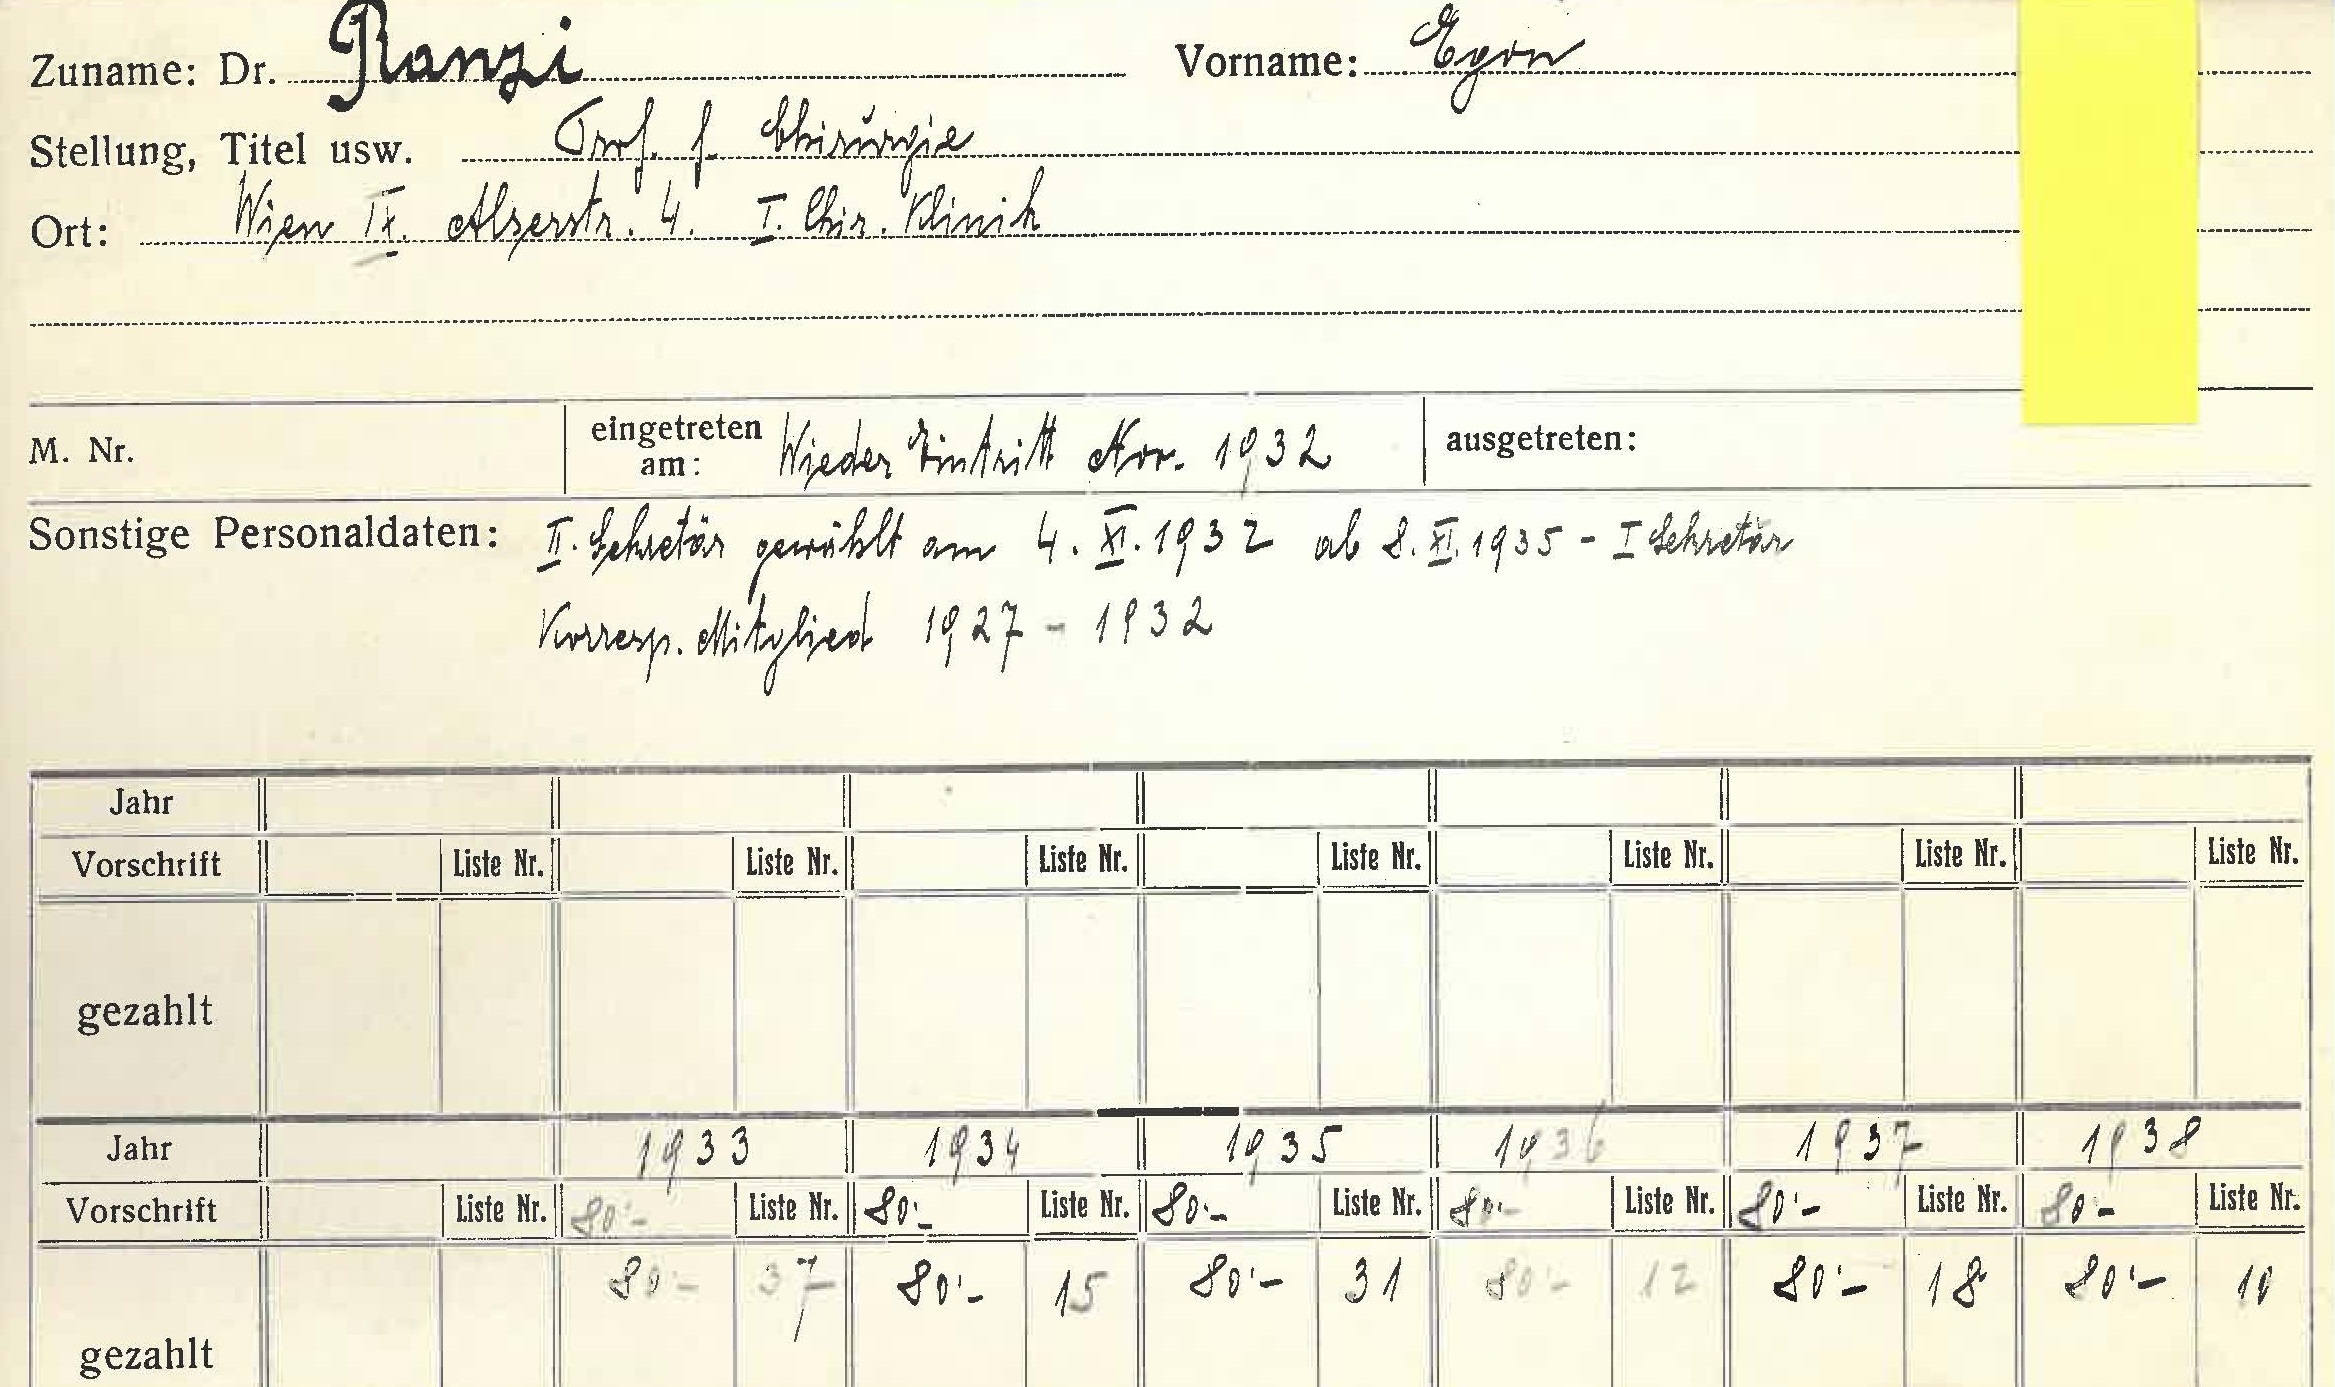 Zuname: Dr. Ranzi Vorname: Egon
Stellung, Titel usw. Prof. f. Chirurgie
Ort: Wien IX. Alserstr. 4. I. Chir. Klinik
M. Nr. eingetreten am: Wieder Eintritt Nov. 1932 ausgetreten:
Sonstige Personaldaten: II. Sekretär gewählt am 4. XI. 1932 ab 8. XI. 1935 - I Sekretär
Korresp. Mitglied 1927 - 1932
Jahr
Vorschrift Liste Nr. Liste Nr. Liste Nr. Liste Nr. Liste Nr. Liste Nr. Liste Nr.
gezahlt
Jahr 1933 1934 1935 1936 1937 1938
Vorschrift Liste Nr. 80'- Liste Nr. 80'- Liste Nr. 80'- Liste Nr. 80'- Liste Nr. 80'- Liste Nr. 80- Liste Nr.
80'- 37 80'- 15 80'- 31 80'- 12 80'- 18 80'- 10
gezahlt